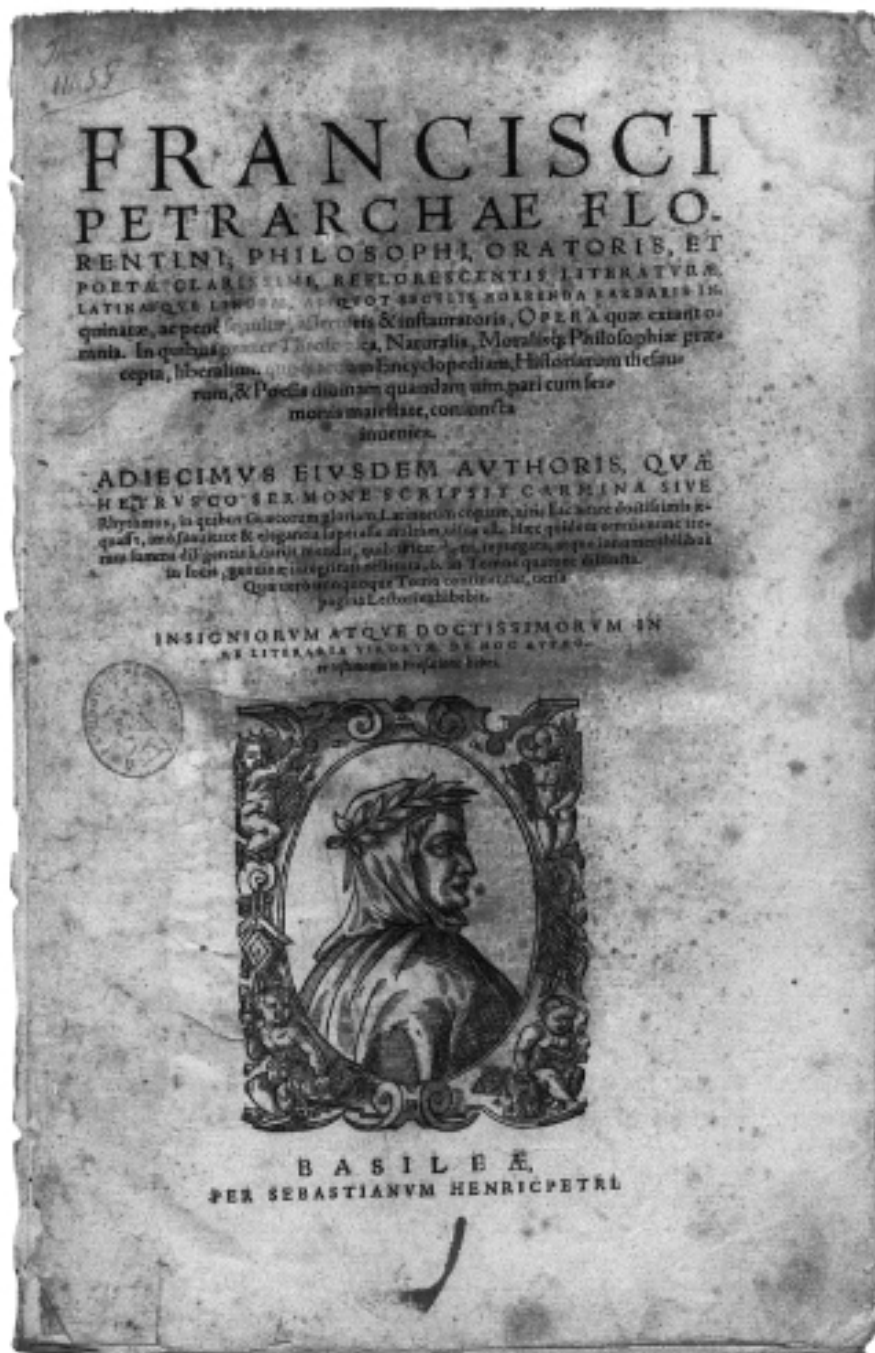 FRANCISCI
PETRARCHAE FLO-
RENTINI, PHILOSOPHI, ORATORIS, ET
POETÆ CLARISSIMI, REFLORESCENTIS LITERATVRÆ,
LATINÆQVE LINGVÆ, ALIQVOT SECVLIS HORRENDA BARBARIE IN-
quinatæ, ac penè sepultæ, assertoris & instauratoris, OPERA quæ extant o-
mnia. In quibus præter Theologica, Naturalis, Moralisq́; Philosophiæ præ-
cepta, liberalium Encyclopediam, Historiarum thesau-
rum, & Poësis diuinam quandam uim, pari cum ser-
monis maiestate, coniuncta
inuenies.
ADIECIMVS EIVSDEM AVTHORIS, QVÆ
HETRVSCO SERMONE SCRIPSIT CARMINA SIVE
Rhythmos, in quibus Græcorum gloriam, Latinorum
& elegantia Hæc quidem omnia nunc ite-
rum summa diligentia
in locis, genuinæ integritati restituta, & in Tomos quatuor distincta.
Quæ uerò unoquoque Tomo continentur, uersa
pagina Lectori exhibebit.
INSIGNIORVM ATQVE DOCTISSIMORVM IN
RE LITERARIA VIRORVM DE HOC AVTHO-
BASILEÆ,
PER SEBASTIANVM HENRICPETRI